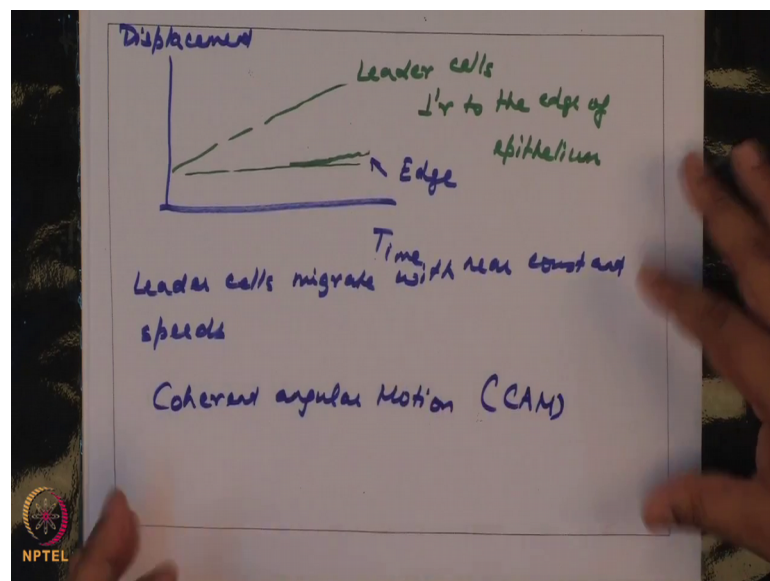 Displacement
Leader cells
⊥'r to the edge of
epithelium
Edge
Time
Leader cells migrate with near constant
speeds
Coherent angular Motion (CAM)
NPTEL